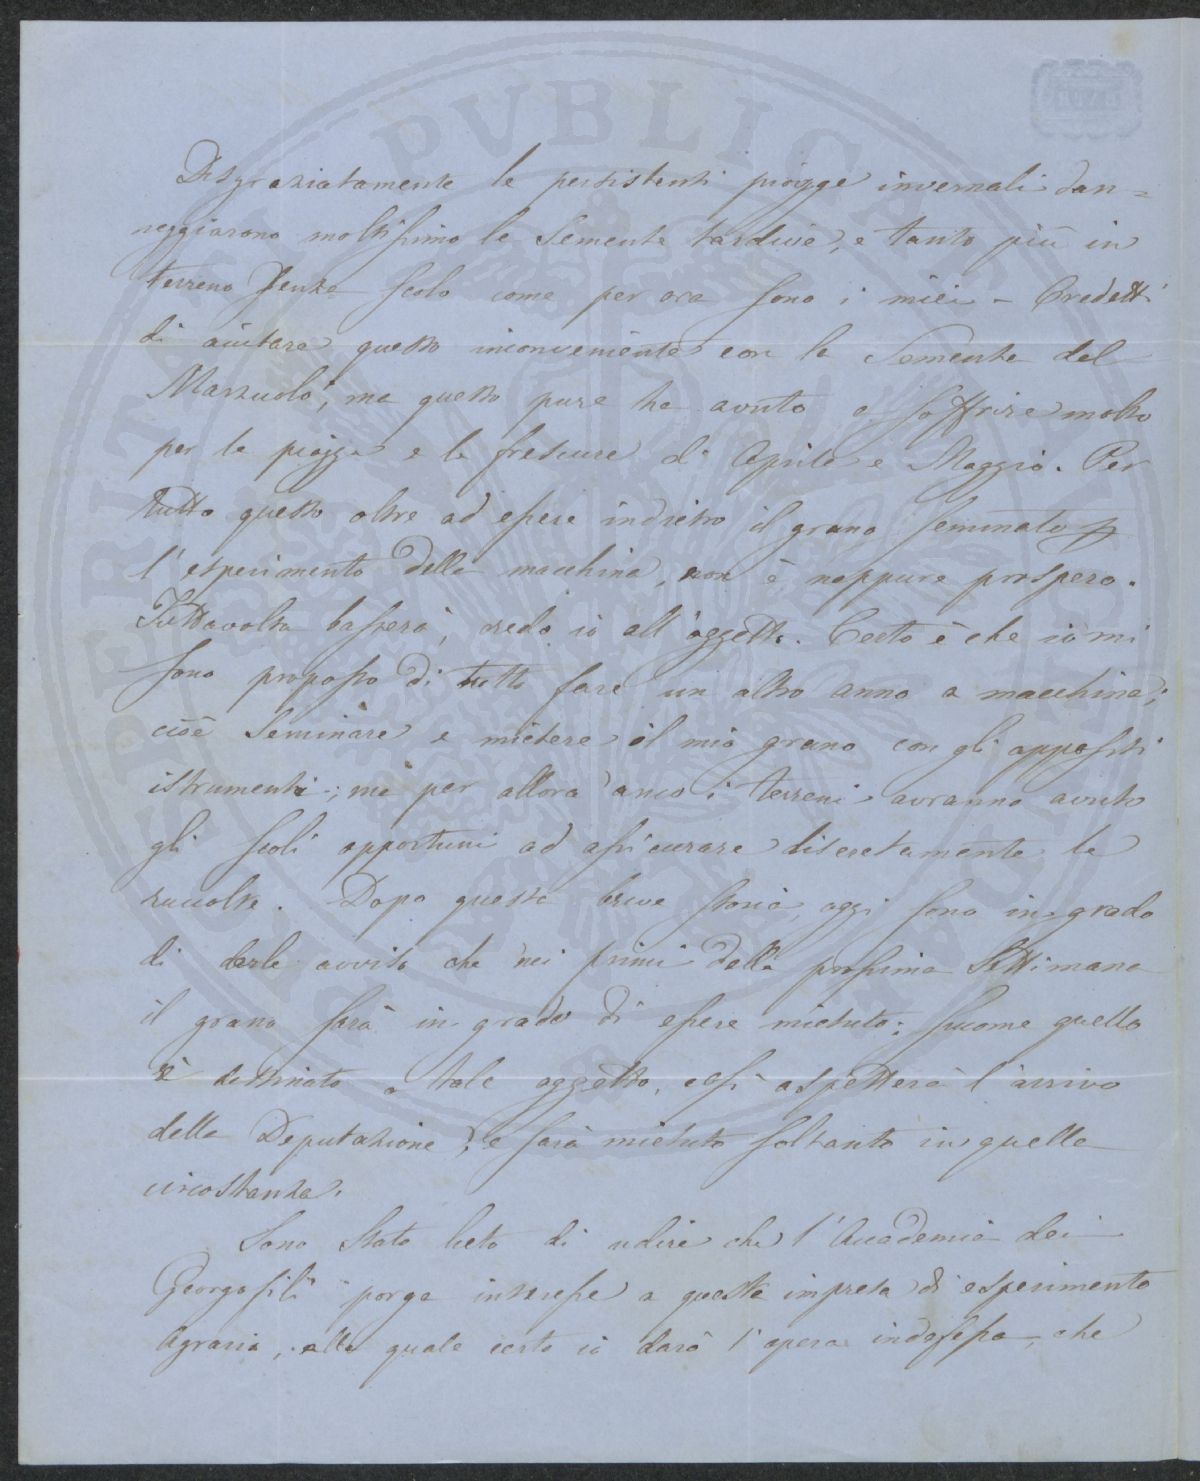 Disgraziatamente le persistenti piogge invernali dan=
neggiarono moltissimo le Semente tardive, e tanto più in
terreno senza scolo come per ora sono i miei - Credetti
di aiutare questo inconveniente con la Sementa del
Marzuolo, ma questo pure ha avuto a soffrire molto
per la pioggia e le frescure di Aprile e Maggio. Per
tutto questo oltre ad essere indietro il grano seminato p
l'esperimento della macchina, non è neppure prospero.
Tuttavolta basterà, credo io all'oggetto. Certo è che io mi
sono proposto di tutto fare un altro anno a macchina;
cioè Seminare e mietere il mio grano con gli appositi
istrumenti; ma per allora anco i terreni avranno avuto
gli scoli opportuni ad assicurare discretamente le
raccolte. Dopo questa breve storia, oggi sono in grado
di darle avviso che nei primi della prossima Settimana
il grano sarà in grado di essere mietuto; siccome quello
è destinato a tale oggetto, così aspetterà l'arrivo
della Deputazione, e sarà mietuto soltanto in quella
circostanza.
Sono stato lieto di udire che l'Accademia dei
Georgofili porga interesse a questa impresa di esperimento
Agrario, alla quale certo io darò l'opera indefessa, che
PERITANTI PVBLICAE